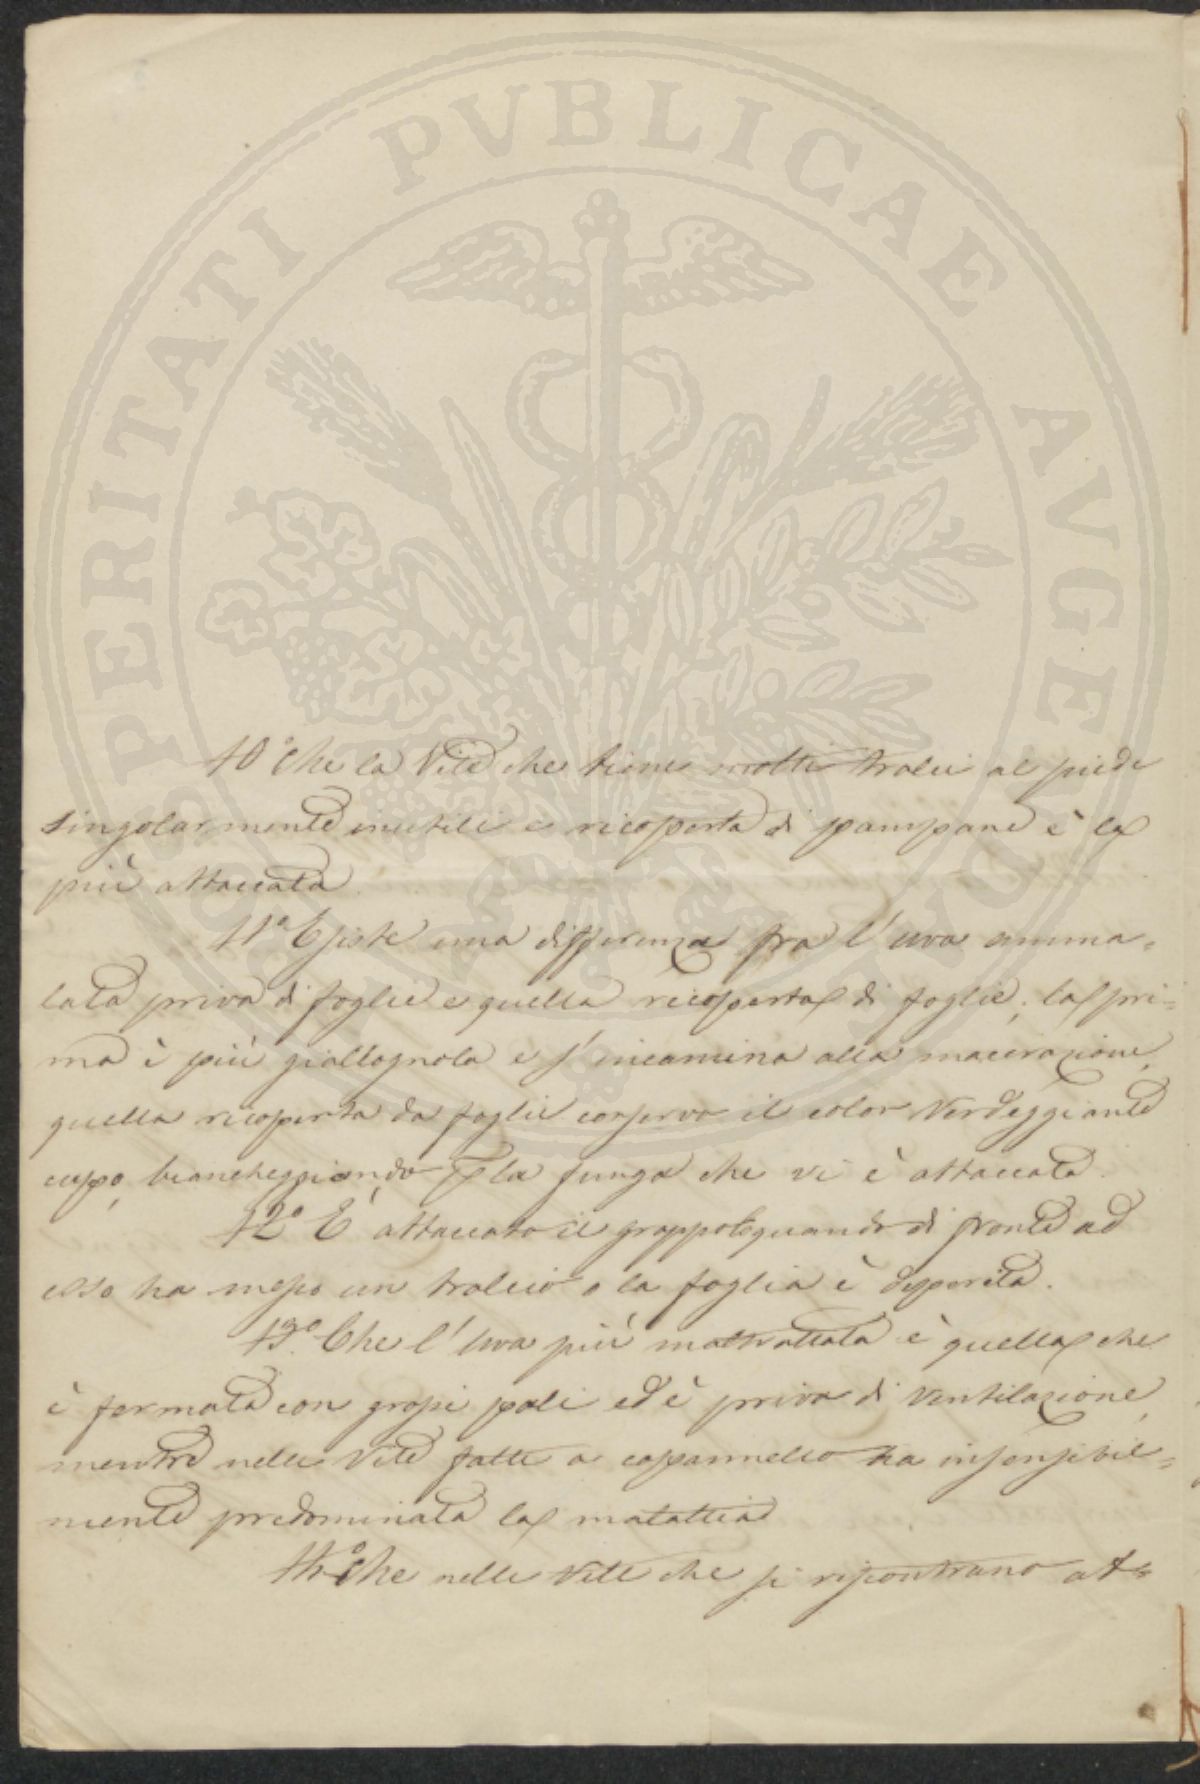 PROSPERITATI PVBLICAE AVGENDAE
10° Che la Vite che tiene molti tralci al piede
singolarmente inutili e ricoperta di pampane è la
più attaccata.
11° Esiste una differenza fra l'uva amma-
lata priva di foglie e quella ricoperta di foglie, la pri-
ma è più giallognola e s'incamina alla macerazione,
quella ricoperta da foglie conserva il color Verdeggiante
cupo, biancheggiando la funga che vi è attaccata.
12° E' attaccato il grappolo quando di fronte ad
esso ha messo un tralcio o la foglia è disperita.
13° Che l'Uva più maltrattata è quella che
è formata con grossi pali ed è priva di Ventilazione,
mentre nelle Vite fatte a capannello ha insensibil-
mente predominata la malattia
14° Che nelle Viti che si riscontrano at-